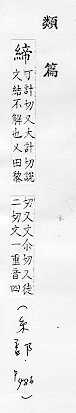 類篇
締
丁計切又大計切説
文結不解也又田黎
切又丈尒切又徒
二切文一重音四
(糸部